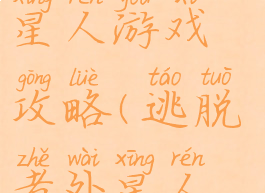 xīng rén yóu xì
星人游戏
gōng lüè táo tuō
攻略(逃脱
zhě wài xīng rén
者外星人